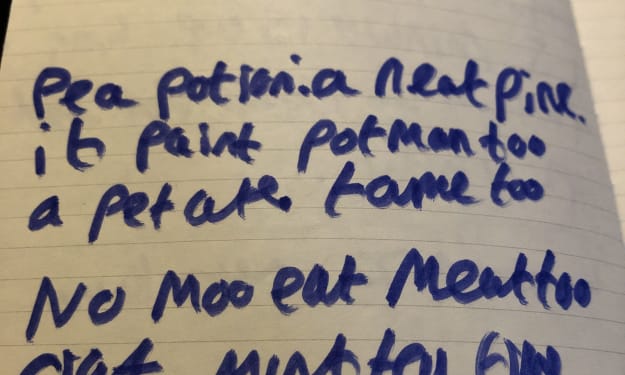 pea potion. a neat pine.
it paint pot man too
a pet ate. tame too
No Moo eat Meat too